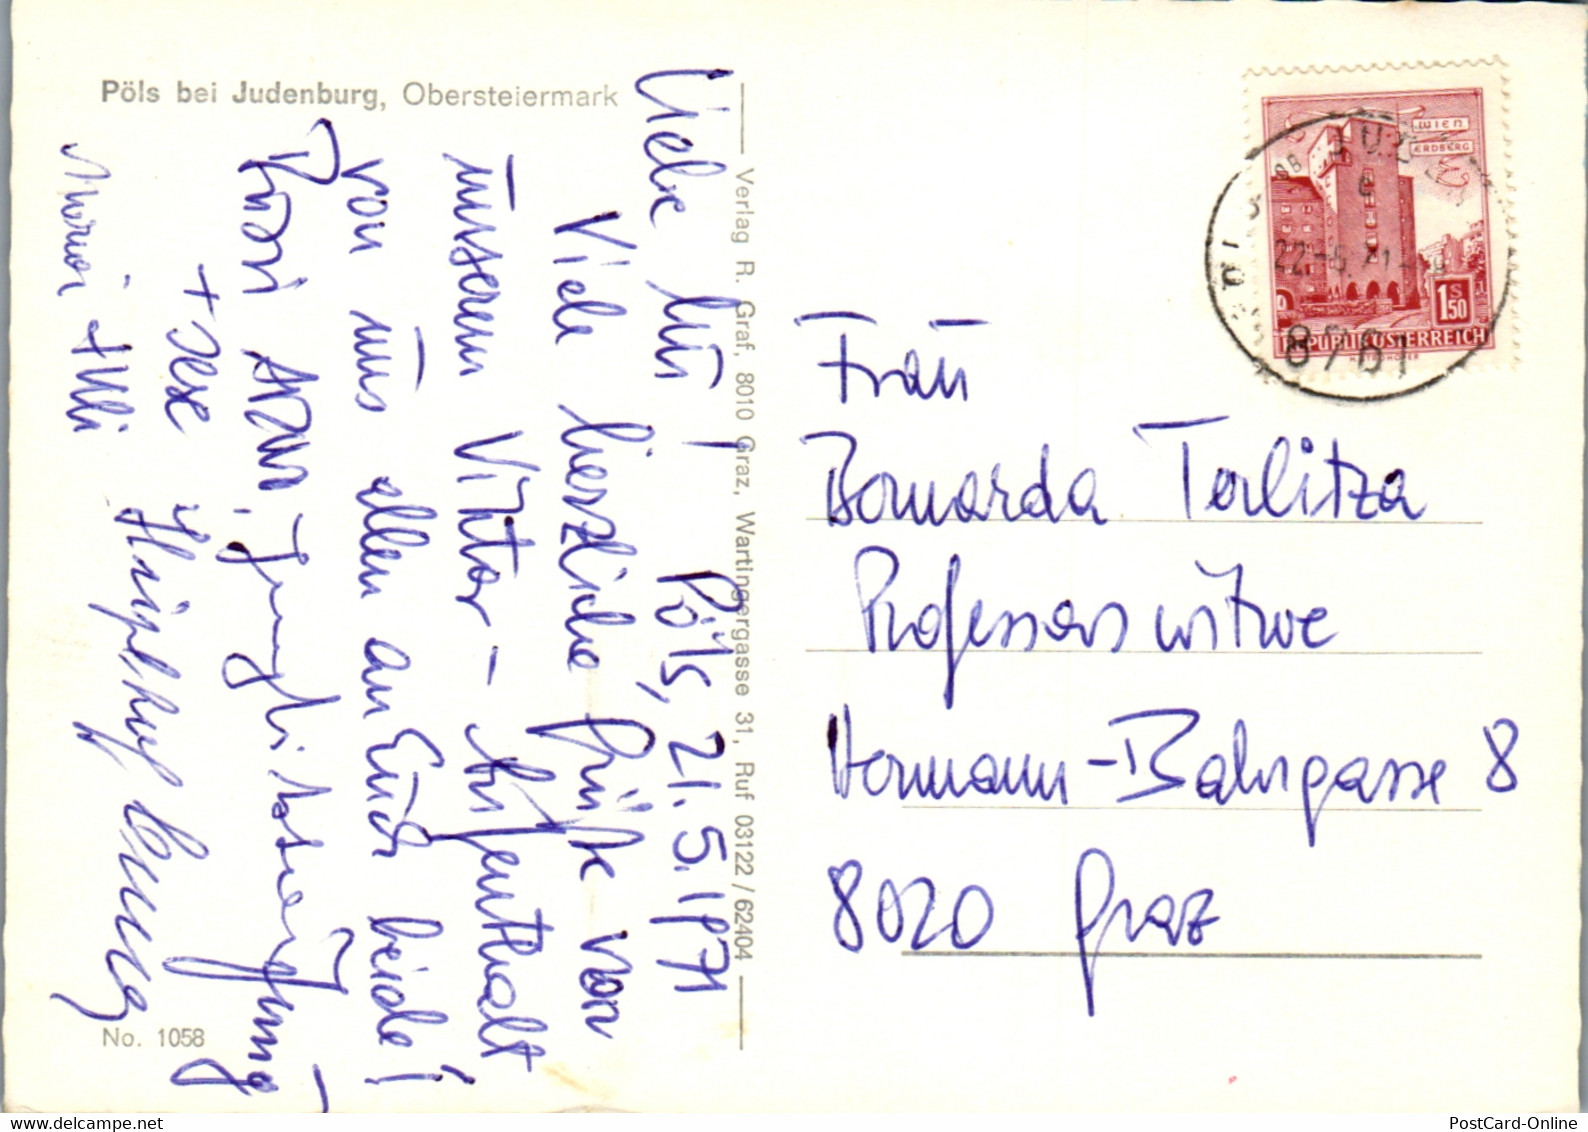 Pöls bei Judenburg, Obersteiermark
Liebe
Pöls, 21.5.1971
Viele herzliche Grüße von
unserem Viktor - Aufenthalt
von uns allen an Euch beide!
+ Sese
Maria + Ulli
No. 1058
Verlag R. Graf, 8010 Graz, Wartingergasse 31, Ruf 03122/62404
WIEN
ERDBERG
1 S 50
REPUBLIK ÖSTERREICH
8761
Frau
Bernarda Terlitza
Professorswitwe
Hermann-Bahrgasse 8
8020 Graz
PostCard-Online
www.delcampe.net